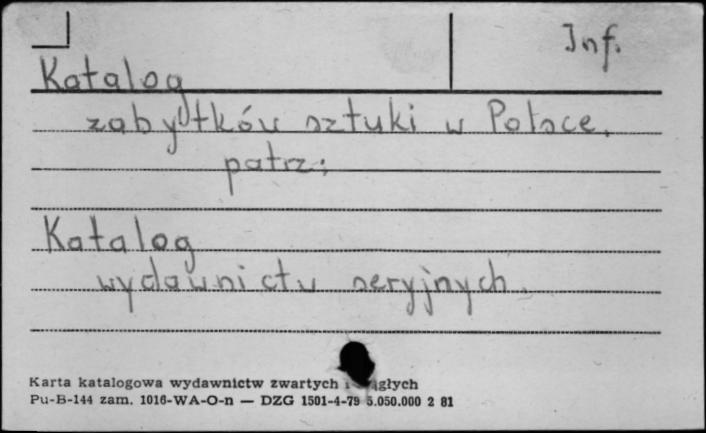 Inf.
Katalog
zabytków sztuki w Polsce.
patrz:
Katalog
wydawnictw seryjnych.
Karta katalogowa wydawnictw zwartych i ciągłych
Pu-B-144 zam. 1016-WA-O-n — DZG 1501-4-79 5.050.000 2 81